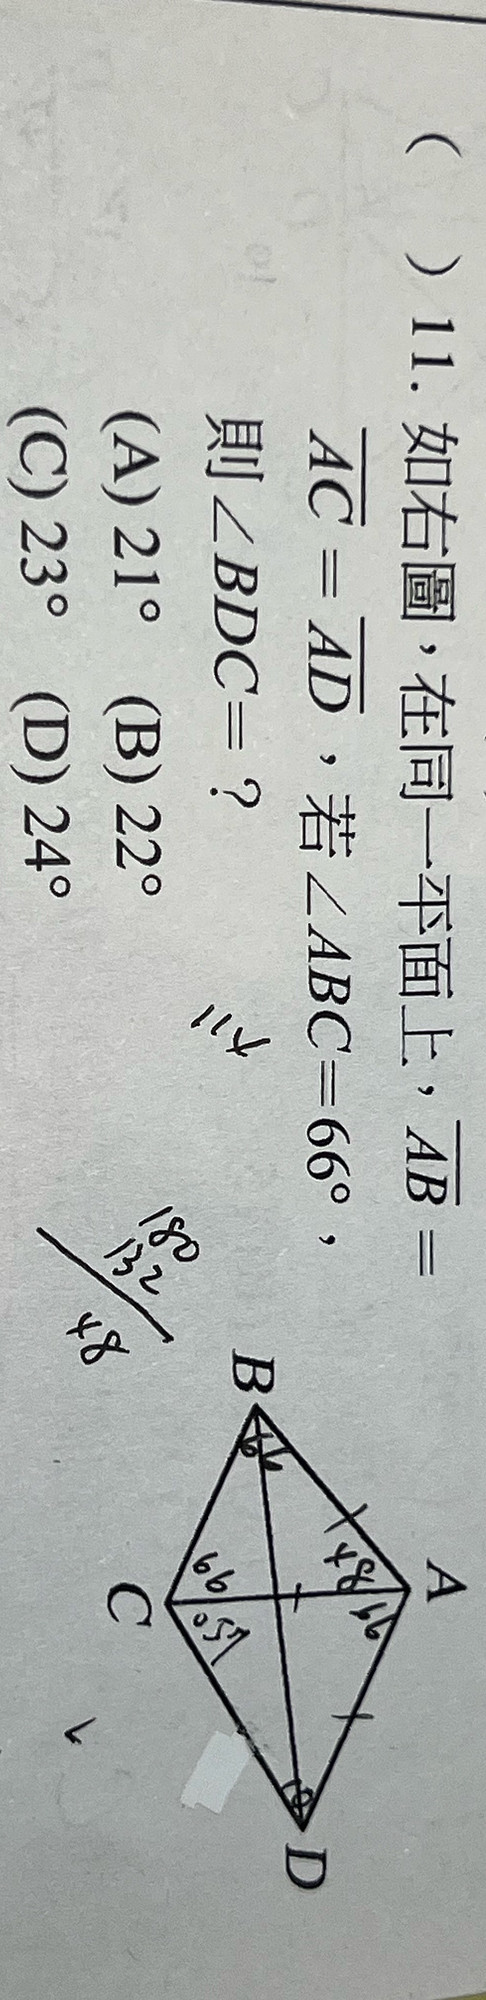 (　) 11. 如右圖，在同一平面上，AB =
AC = AD，若∠ABC=66°，
則∠BDC=？
(A) 21° (B) 22°
(C) 23° (D) 24°
180
132
48
A
B
C
D
48
66
66